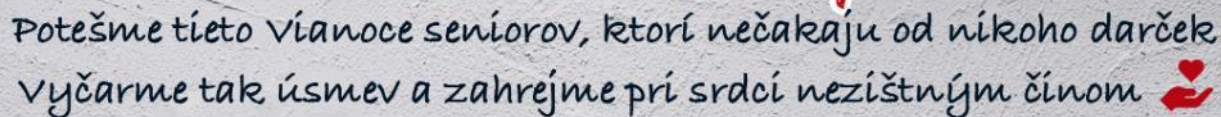 Potešme tieto Vianoce seniorov, ktorí nečakajú od nikoho darček
Vyčarme tak úsmev a zahrejme pri srdci nezištným činom